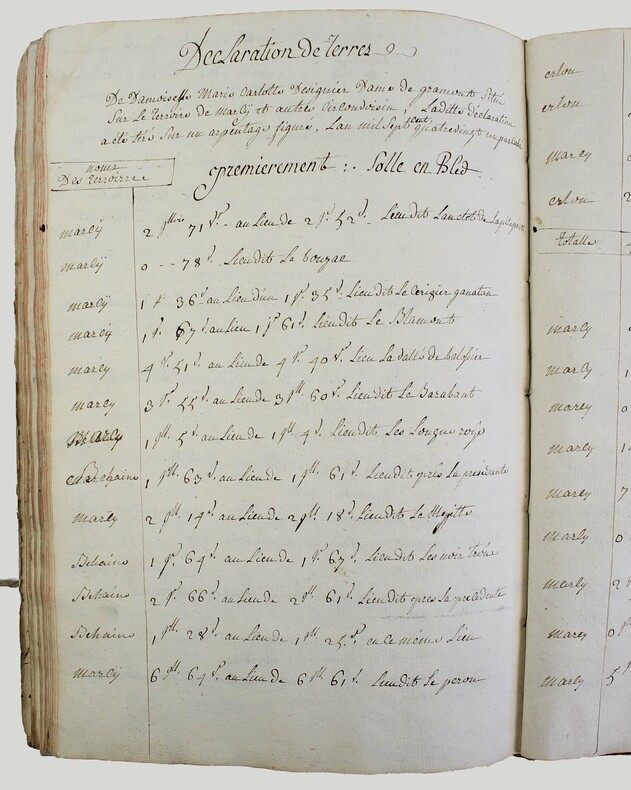 Declaration de terres
De Damoiselle Marie Carlotte Designier Dame de gramont Situé
Sur Le terroire de Marcÿ et autres circonvoisin, Laditte déclaration
a été tiré Sur un arpentage figuré. Lan mil Sept cent quatrevingt un par
noms
Des terroirre
premierement : Solle en Bled
marcÿ 2 71 v. au Lieu de 2 j. 52 v. Lieudit
marcÿ 0 -- 78 v. Lieudit Le
marcÿ 1 j. 36 v. au Lieu d'un 1 j. 35 v. Lieudit Le Cerizier
marcÿ 1 j. 67 v. au Lieu 1 j. 61 v. Lieudit Le Blamont
marcy 4 j. 51 v. au Lieu de 4 j. 40 v. Lieu La vallé de
marcy 3 j. 55 v. au Lieu de 3 j. 60 v. Lieudit Le Barabant
Marcy 1 j. 5 v. au Lieu de 1 j. 4 v. Lieudit Les Longue roÿe
Bechaine 1 j. 63 v. au Lieu de 1 j. 61 v. Lieudit près La présidante
marcy 2 j. 14 v. au Lieu de 2 j. 18 v. Lieudit Le
Behaine 1 j. 64 v. au Lieu de 1 j. 67 v. Lieudit Les noir
Behaine 2 j. 66 v. au Lieu de 2 j. 61 v. Lieudit près La precedente
Behaine 1 j. 28 v. au Lieu de 1 j. 25 v. en ce même Lieu
marcÿ 6 j. 64 v. au Lieu de 6 j. 61 v. Lieudit Le peron
erlon
erlon
marcy
erlon 2
totalle
marcy
marcy 1
marcy 0
marcy 1
marcy 7
marcy 0
marcy 2
marcy 0
marcy 5